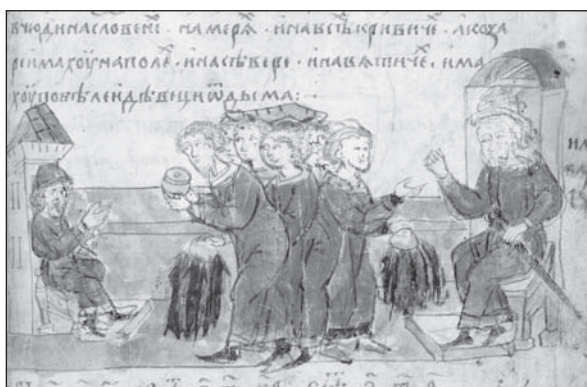 вчюдинасловене · намеряⷯ · инавсѣⷯкривиче · акоза
реимахоуⷩаполеⷯ · инасѣвере · инавятичеⷯ · има
хоупобѣлеидѣвециѿдыма: